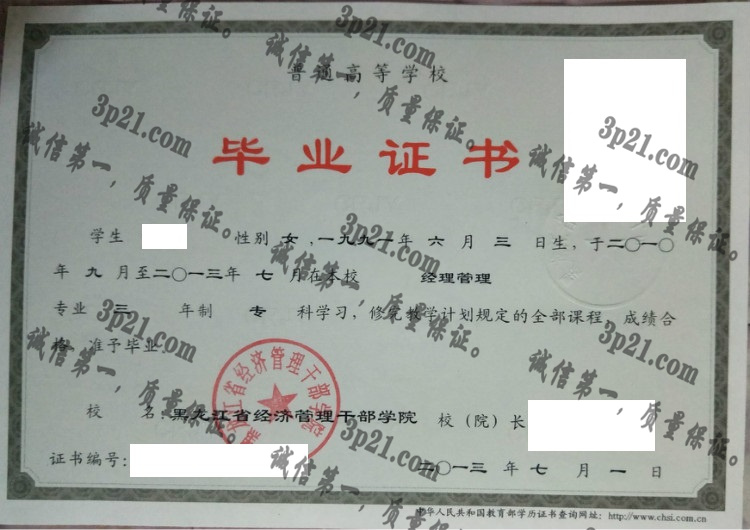 普通高等学校
毕业证书
学生 性别 女 ,一九九一年 六 月 三 日生，于二〇一〇
年 九 月至二〇一三年 七 月在本校 经理管理
专业 三 年制 专 科学习，修完教学计划规定的全部课程，成绩合
格，准予毕业。
黑龙江省经济管理干部学院
校 名：黑龙江省经济管理干部学院 校（院）长
证书编号：
二〇一三 年 七 月 一 日
中华人民共和国教育部学历证书查询网址：http://www.chsi.com.cn
3p21.com
诚信第一，质量保证。
3p21.com
诚信第一，质量保证。
3p21.com
诚信第一，质量保证。
3p21.com
诚信第一，质量保证。
3p21.com
诚信第一，质量保证。
3p21.com
诚信第一，质量保证。
3p21.com
诚信第一，质量保证。
3p21.com
诚信第一，质量保证。